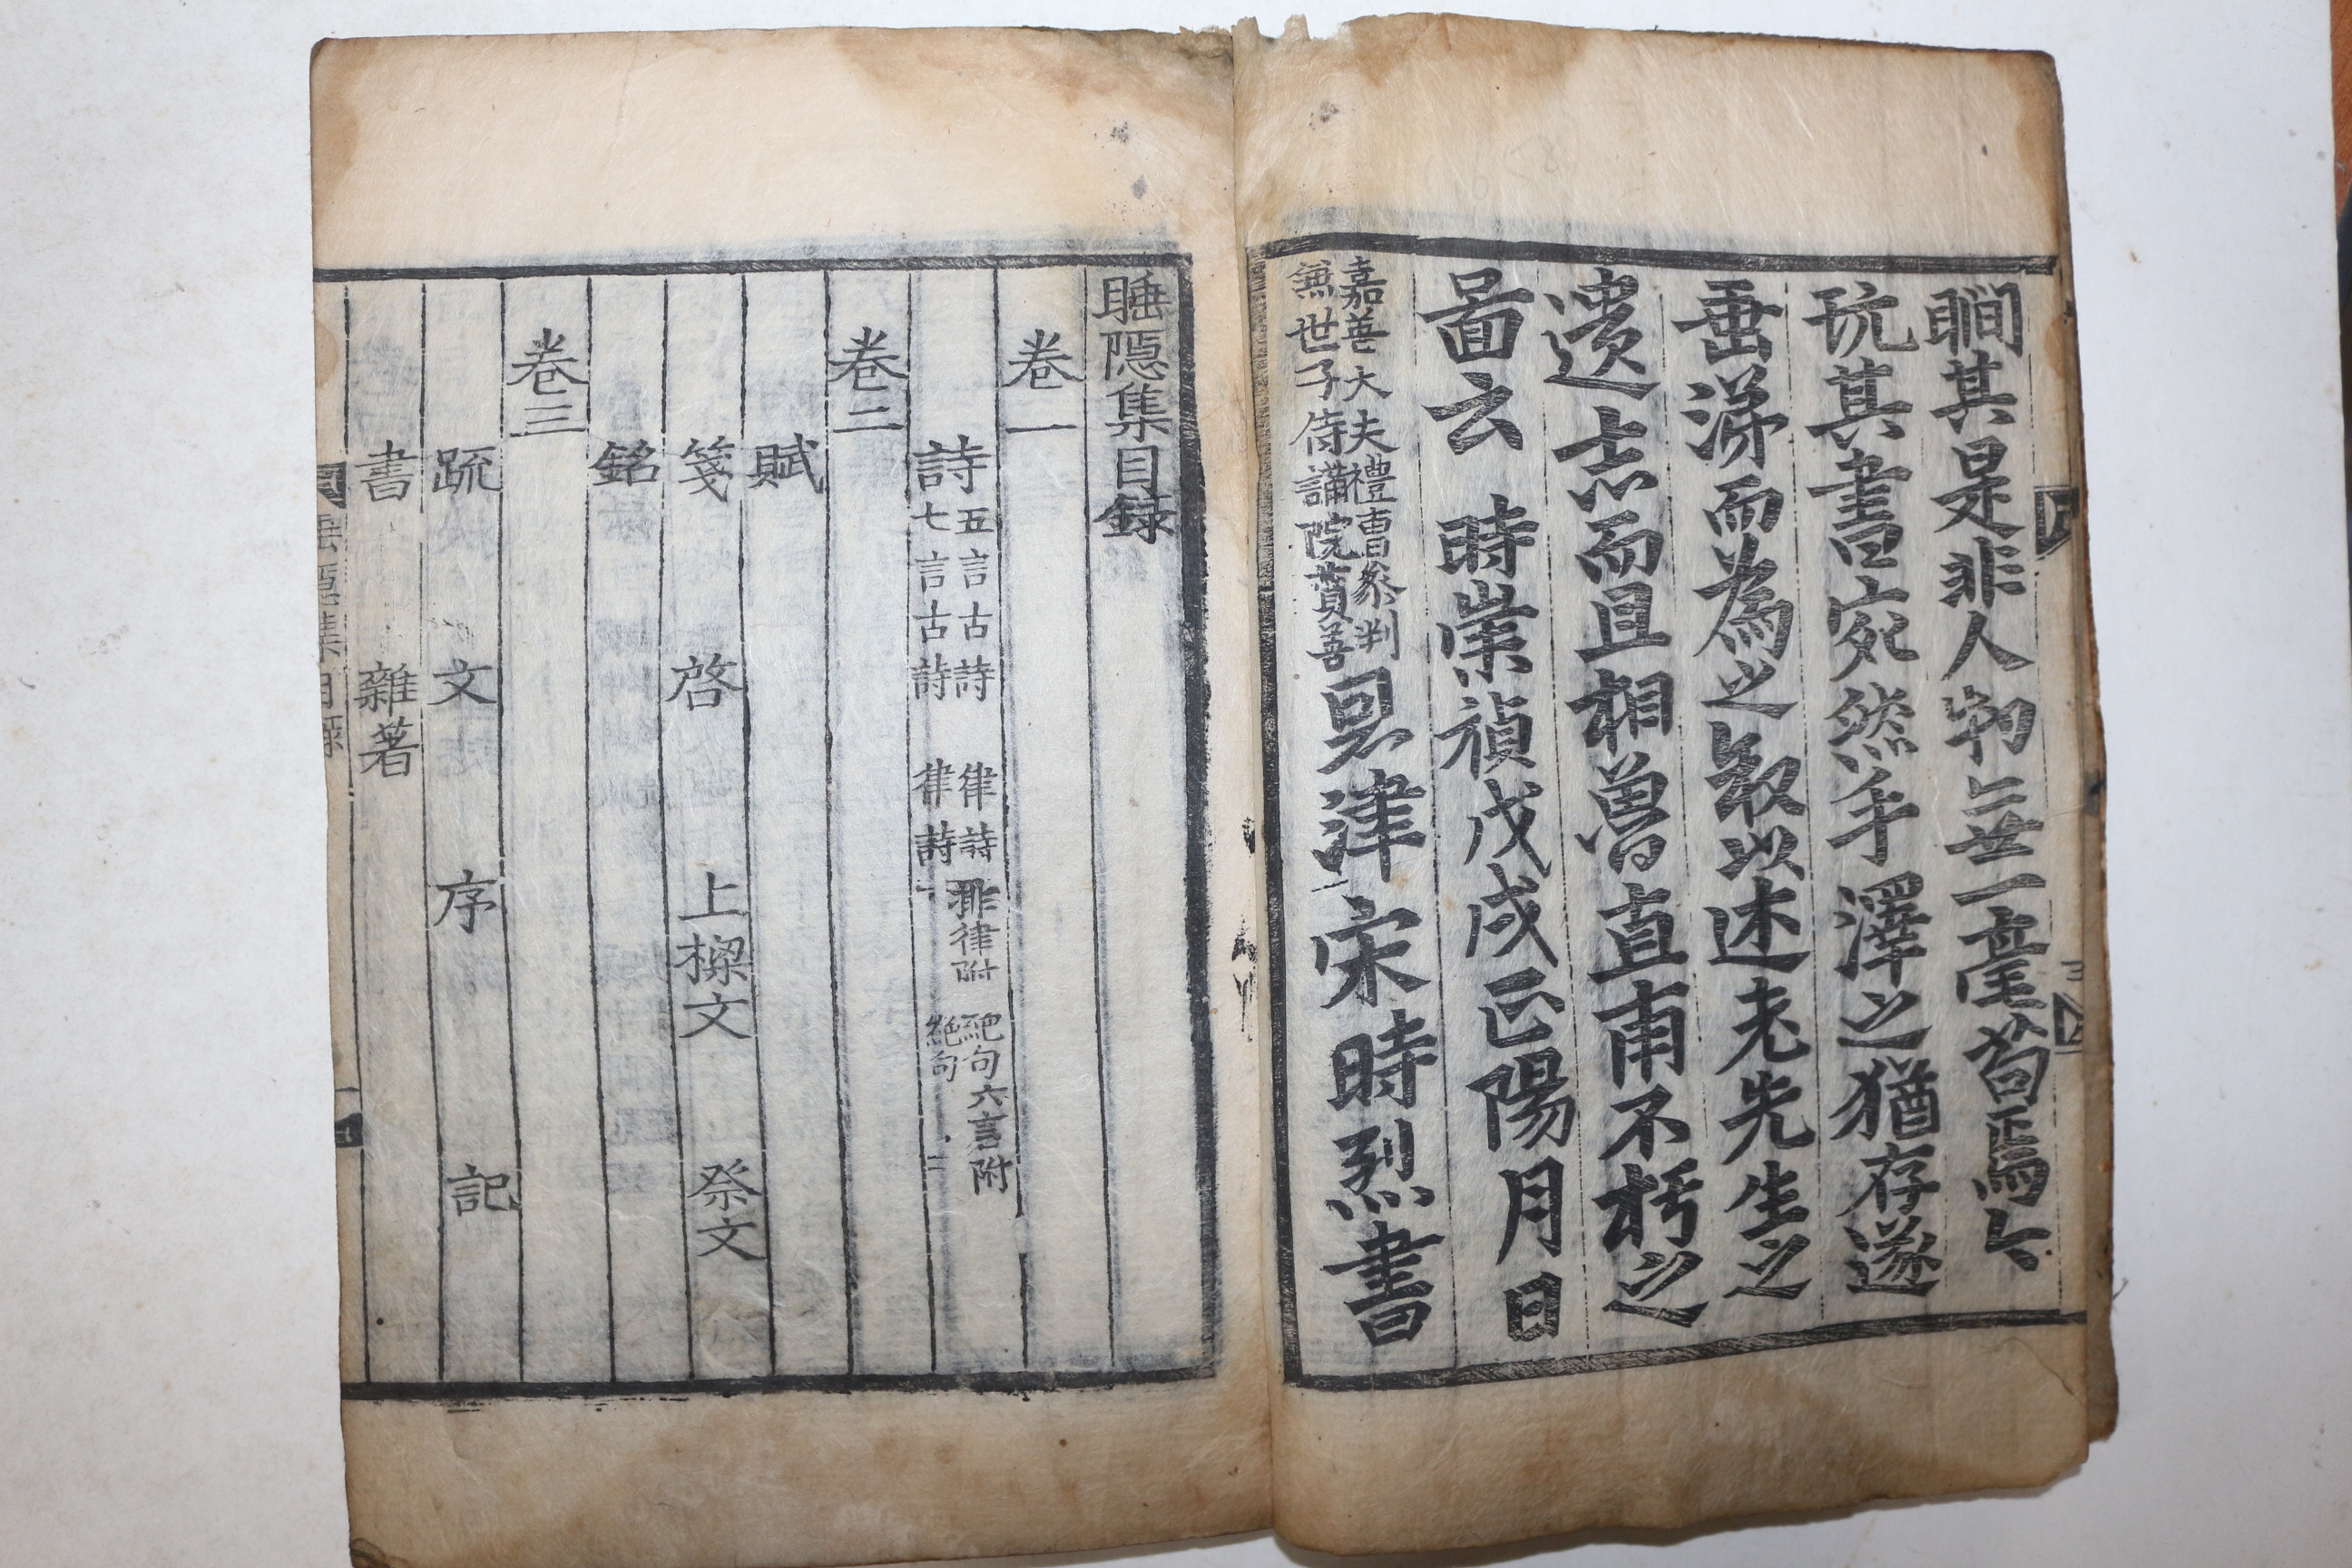 瞯其是非人物無一毫苟焉今
玩其書宛然手澤之猶存遂
垂涕而爲之叙以述老先生之
遺志而且相曾直甫不朽之
啚云 時崇禎戊戌正陽月日
嘉善大夫禮曹叅判
兼世子侍講院賛善
恩津宋時烈書
睡隱集目錄
卷一
詩
五言古詩 律詩 排律附 絕句 六言附
七言古詩 律詩 絕句
卷二
賦
箋 啓 上樑文 祭文
銘
卷三
疏 文 序 記
書 雜著
睡隱集目錄 一